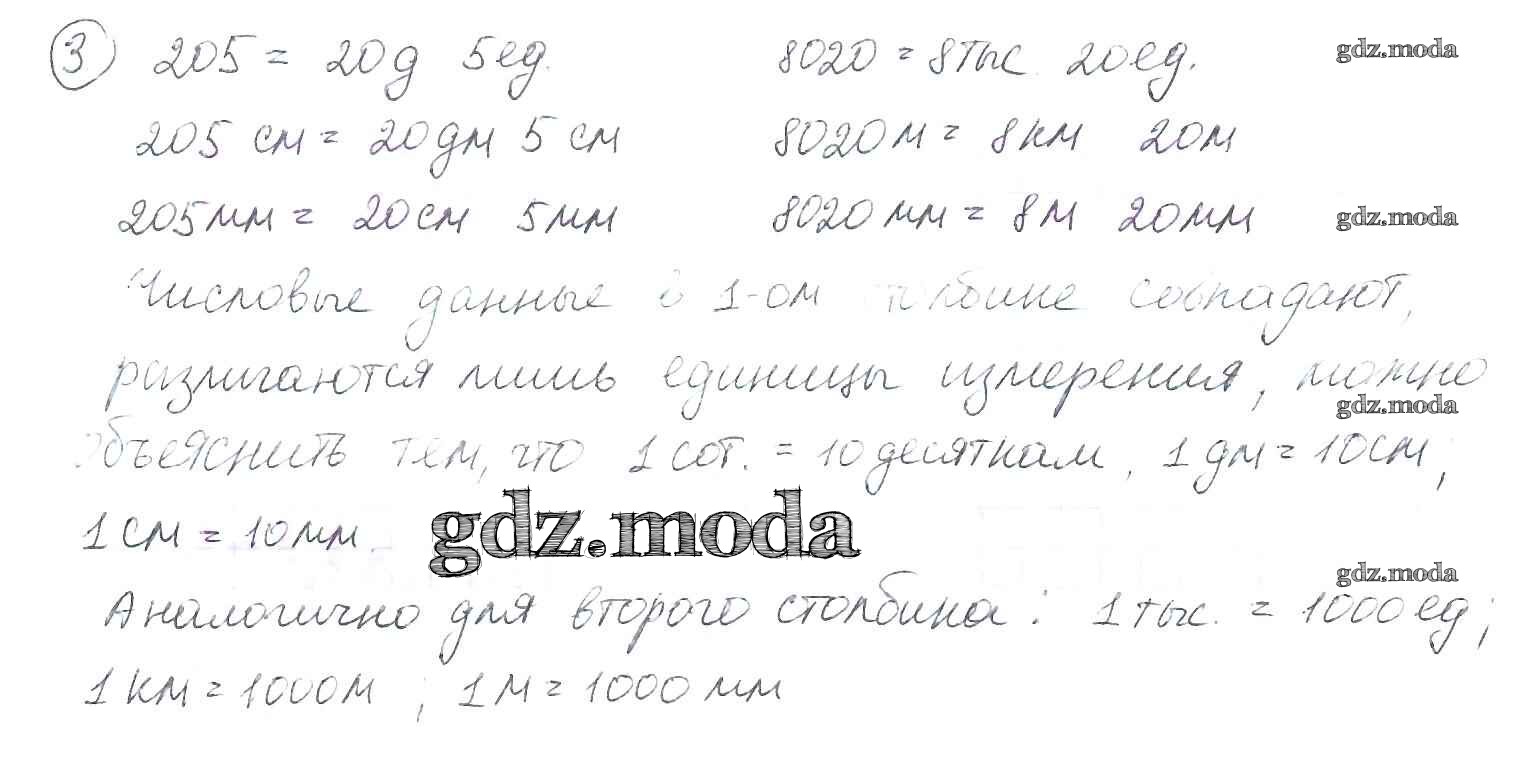 3 205 = 20д 5ед. 8020 = 8тыс. 20ед. gdz.moda
205 см = 20дм 5 см 8020м = 8км 20м
205мм = 20см 5мм 8020мм = 8м 20мм gdz.moda
Числовые данные в 1-ом столбике совпадают,
различаются лишь единицы измерения, можно
gdz.moda
объяснить тем, что 1 сот. = 10 десяткам, 1 дм = 10см;
1 см = 10мм. gdz.moda
gdz.moda
Аналогично для второго столбика: 1 тыс. = 1000 ед;
1 км = 1000м ; 1 м = 1000 мм